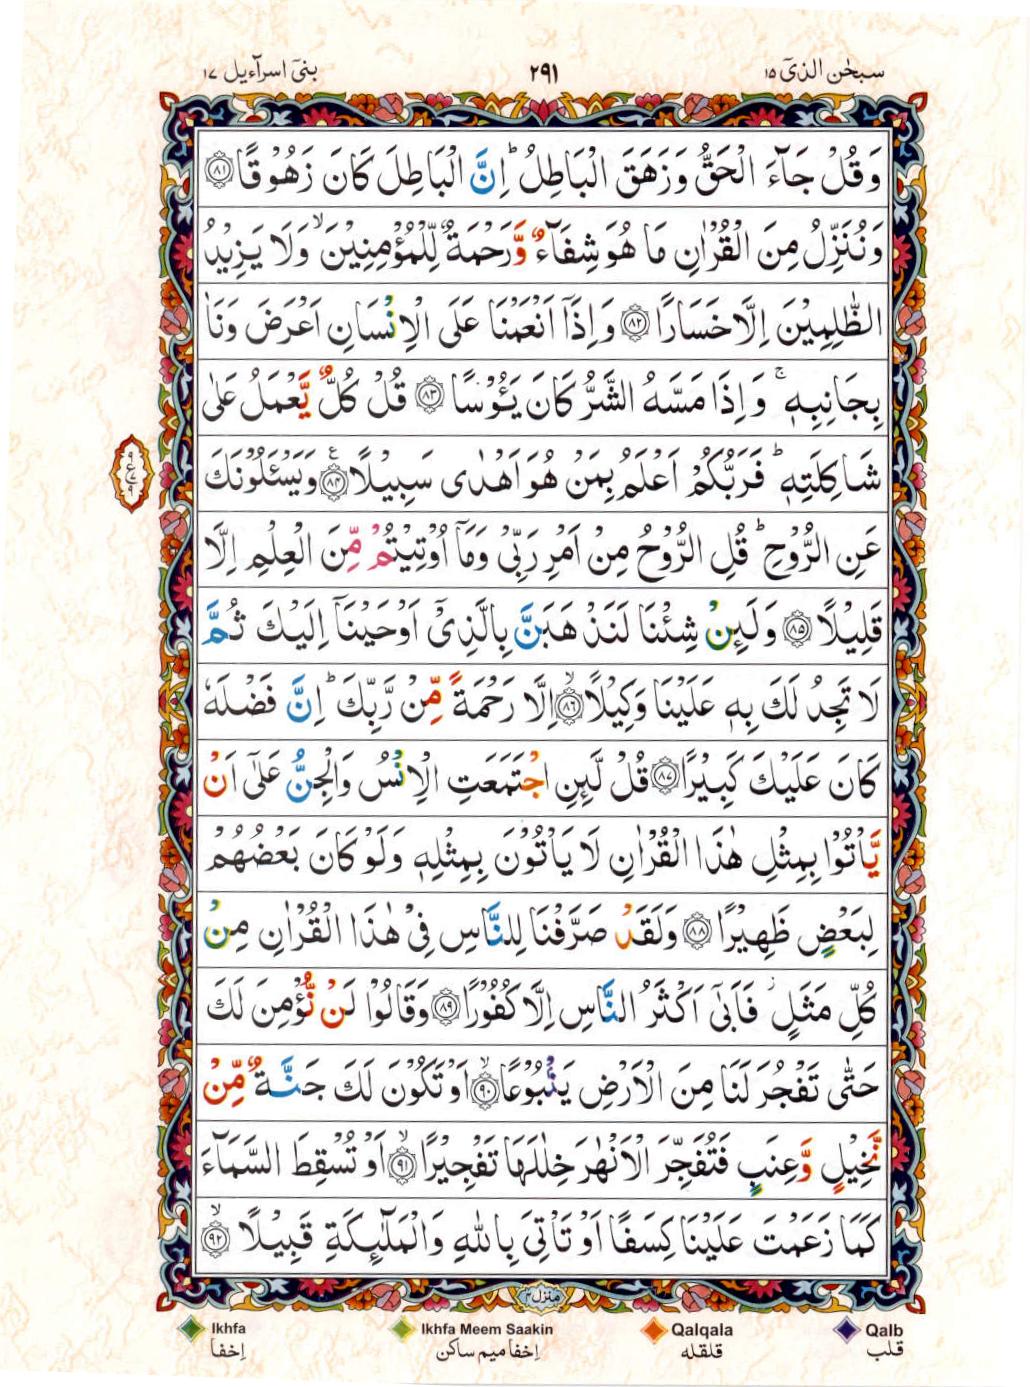 سبحٰن الذیٓ ١٥
٢٩١
بنیٓ اسرآءیل ١٧
وَقُلْ جَآءَ الْحَقُّ وَزَهَقَ الْبَاطِلُ ؕ اِنَّ الْبَاطِلَ كَانَ زَهُوْقًا ﴿٨١﴾
وَنُنَزِّلُ مِنَ الْقُرْاٰنِ مَا هُوَ شِفَآءٌ وَّرَحْمَةٌ لِّلْمُؤْمِنِيْنَ ۙ وَلَا يَزِيْدُ
الظّٰلِمِيْنَ اِلَّا خَسَارًا ﴿٨٢﴾ وَاِذَآ اَنْعَمْنَا عَلَى الْاِنْسَانِ اَعْرَضَ وَنَاٰ
بِجَانِبِهٖ ۚ وَاِذَا مَسَّهُ الشَّرُّ كَانَ يَـُٔوْسًا ﴿٨٣﴾ قُلْ كُلٌّ يَّعْمَلُ عَلٰى
شَاكِلَتِهٖ ؕ فَرَبُّكُمْ اَعْلَمُ بِمَنْ هُوَ اَهْدٰى سَبِيْلًا ﴿٨٤﴾ ع وَيَسْـَٔلُوْنَكَ
عَنِ الرُّوْحِ ؕ قُلِ الرُّوْحُ مِنْ اَمْرِ رَبِّيْ وَمَآ اُوْتِيْتُمْ مِّنَ الْعِلْمِ اِلَّا
قَلِيْلًا ﴿٨٥﴾ وَلَئِنْ شِئْنَا لَنَذْهَبَنَّ بِالَّذِيْٓ اَوْحَيْنَآ اِلَيْكَ ثُمَّ
لَا تَجِدُ لَكَ بِهٖ عَلَيْنَا وَكِيْلًا ﴿٨٦﴾ ۙ اِلَّا رَحْمَةً مِّنْ رَّبِّكَ ؕ اِنَّ فَضْلَهٗ
كَانَ عَلَيْكَ كَبِيْرًا ﴿٨٧﴾ قُلْ لَّئِنِ اجْتَمَعَتِ الْاِنْسُ وَالْجِنُّ عَلٰٓى اَنْ
يَّاْتُوْا بِمِثْلِ هٰذَا الْقُرْاٰنِ لَا يَاْتُوْنَ بِمِثْلِهٖ وَلَوْ كَانَ بَعْضُهُمْ
لِبَعْضٍ ظَهِيْرًا ﴿٨٨﴾ وَلَقَدْ صَرَّفْنَا لِلنَّاسِ فِيْ هٰذَا الْقُرْاٰنِ مِنْ
كُلِّ مَثَلٍ ؗ فَاَبٰٓى اَكْثَرُ النَّاسِ اِلَّا كُفُوْرًا ﴿٨٩﴾ وَقَالُوْا لَنْ نُّؤْمِنَ لَكَ
حَتّٰى تَفْجُرَ لَنَا مِنَ الْاَرْضِ يَنْۢبُوْعًا ﴿٩٠﴾ ۙ اَوْ تَكُوْنَ لَكَ جَنَّةٌ مِّنْ
نَّخِيْلٍ وَّعِنَبٍ فَتُفَجِّرَ الْاَنْهٰرَ خِلٰلَهَا تَفْجِيْرًا ﴿٩١﴾ ۙ اَوْ تُسْقِطَ السَّمَآءَ
كَمَا زَعَمْتَ عَلَيْنَا كِسَفًا اَوْ تَاْتِيَ بِاللّٰهِ وَالْمَلٰٓئِكَةِ قَبِيْلًا ﴿٩٢﴾ ۙ
منزل ٤
Ikhfa Ikhfa Meem Saakin Qalqala Qalb
إخفا إخفا ميم ساكن قلقله قلب